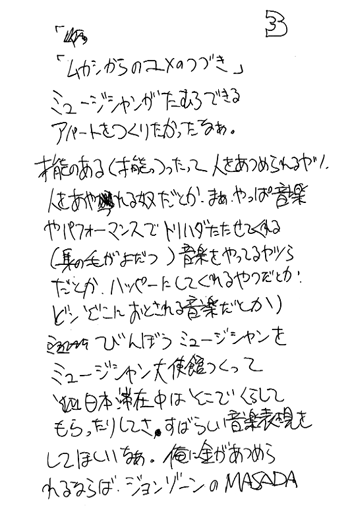 33
「ムカシからのユメのつづき」
ミュージシャンがたむろできる
アパートをつくりたかったなぁ。
才能のある(才能っつったって 人をあつめられるヤツ、
人をあやつれる奴だとか、まぁ、やっぱ音楽
やパフォーマンスでトリハダたたせてくれる
(身の毛がよだつ)音楽をやってるヤツら
だとか、ハッピーにしてくれるやつだとか、
どん底におとされる音楽だとか)
てびんぼうミュージシャンを
ミュージシャン大使館つくって
日本滞在中はそこでくらして
もらったりしてさ、すばらしい音楽表現を
してほしいなぁ。俺に金があつめら
れるならば、ジョンゾーンのMASADA